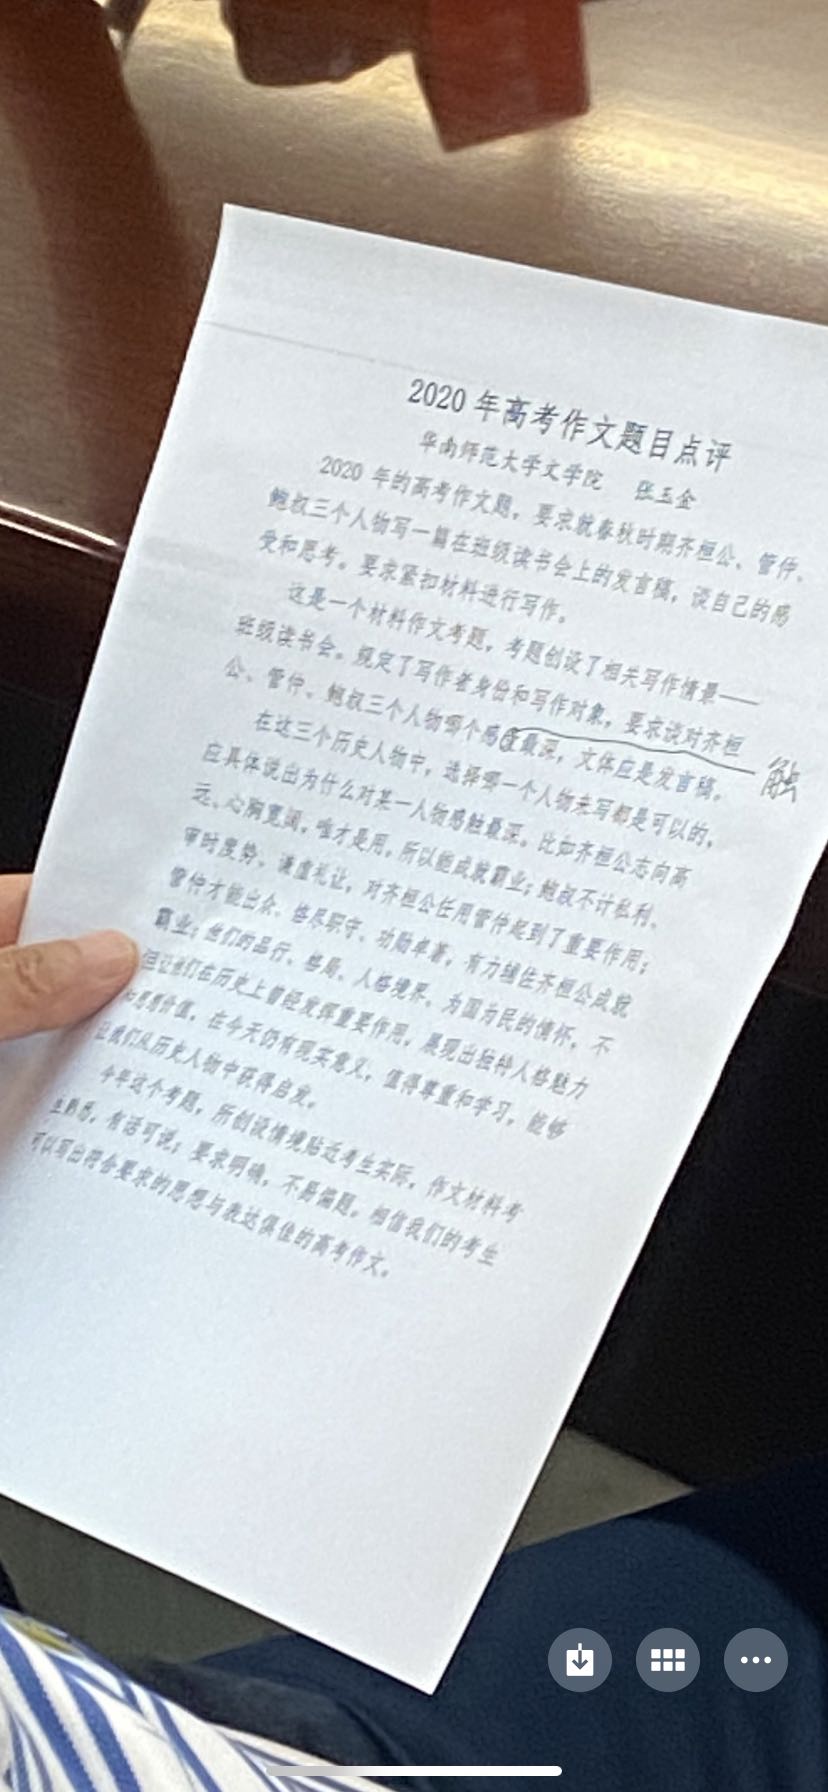 2020 年高考作文题目点评
华南师范大学文学院 张玉金
2020 年的高考作文题，要求就春秋时期齐桓公、管仲、
鲍叔三个人物写一篇在班级读书会上的发言稿，谈自己的感
受和思考。要求紧扣材料进行写作。
这是一个材料作文考题，考题创设了相关写作情景——
班级读书会。规定了写作者身份和写作对象，要求谈对齐桓
公、管仲、鲍叔三个人物哪个感最深，文体应是发言稿。
触
在这三个历史人物中，选择哪一个人物来写都是可以的，
应具体说出为什么对某一人物感触最深。比如齐桓公志向高
远、心胸宽阔，唯才是用，所以能成就霸业；鲍叔不计私利、
审时度势、谦虚礼让，对齐桓公任用管仲起到了重要作用；
管仲才能出众、恪尽职守、功勋卓著，有力辅佐齐桓公成就
霸业；他们的品行、格局、人格境界、为国为民的情怀，不
但让他们在历史上曾经发挥重要作用，展现出独特人格魅力
和思想价值，在今天仍有现实意义，值得尊重和学习，能够
让我们从历史人物中获得启发。
今年这个考题，所创设情境贴近考生实际，作文材料考
生熟悉，有话可说；要求明确，不易偏题。相信我们的考生
可以写出符合要求的思想与表达俱佳的高考作文。